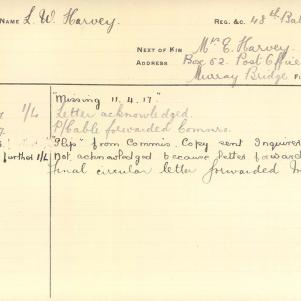 NAME L. W. Harvey. REG. &C. 48th Bat
NEXT OF KIN Mrs E. Harvey.
ADDRESS Box 52. Post Office
Murray Bridge
"Missing 11.4.17."
1/L Letter acknowledged.
P/Cable forwarded Commrs.
"Slip" from Commis. Copy sent Inquirer
further 1/L Not acknowledged because letter forward
Final circular letter forwarded